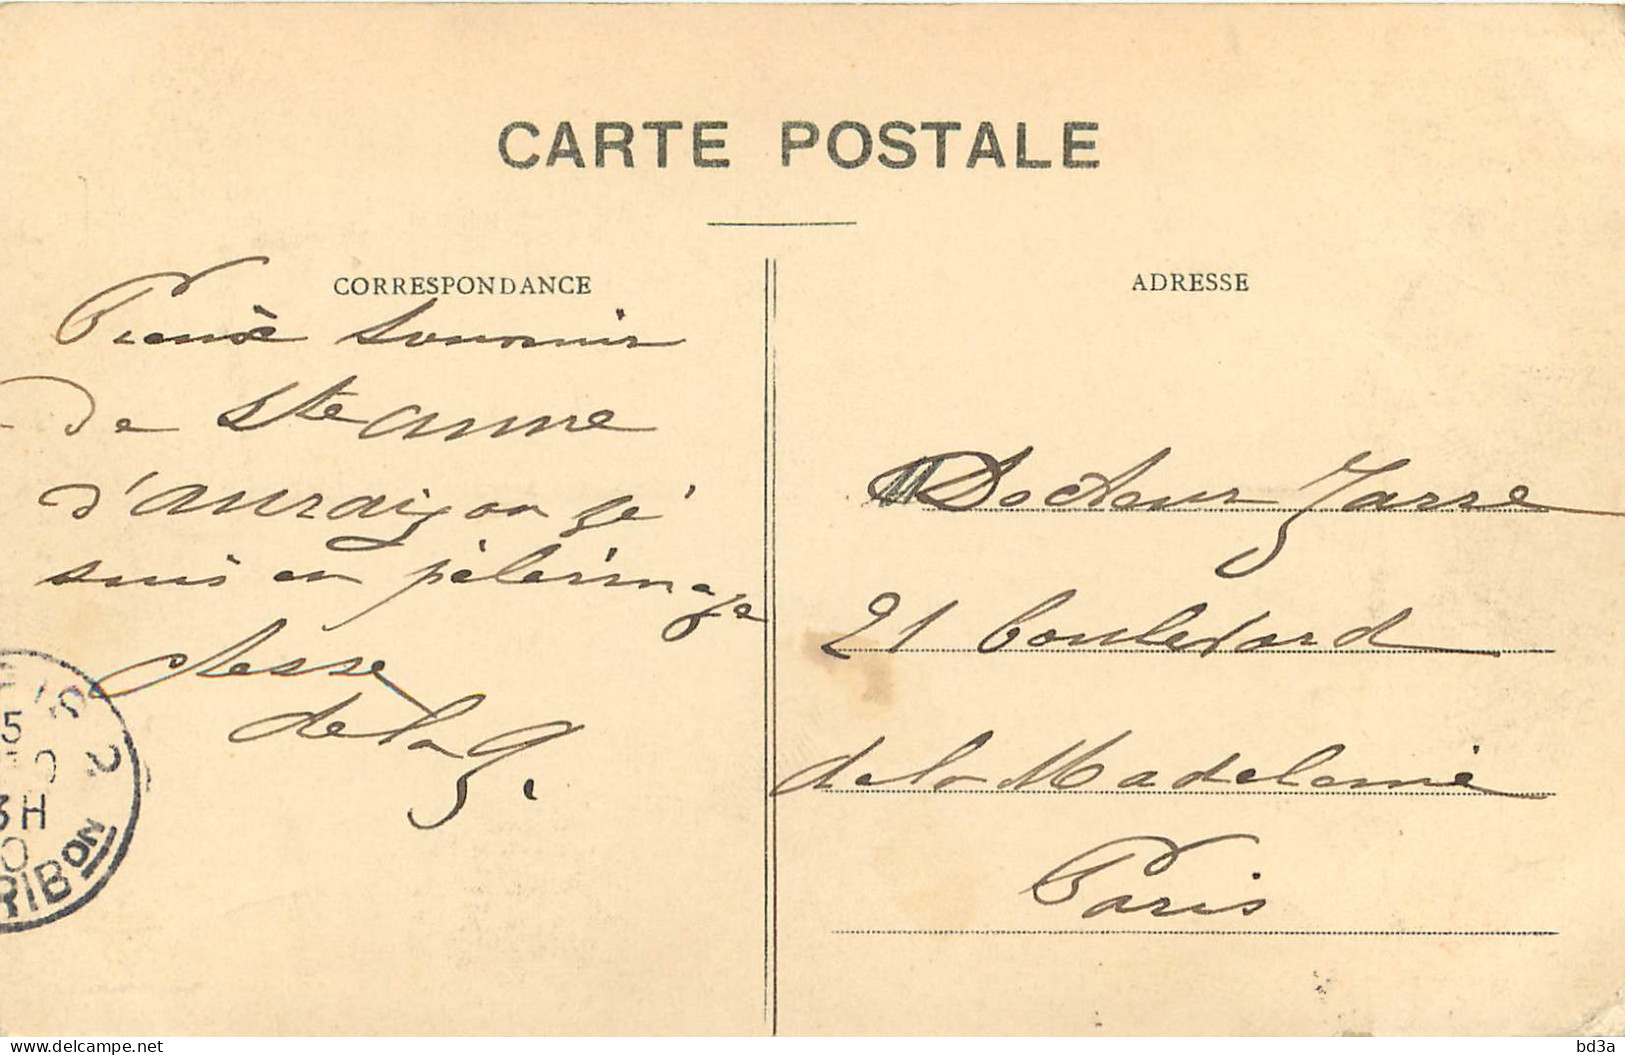 CARTE POSTALE
CORRESPONDANCE
Pieuse souvenir
de Ste anne
d'auray
suis en pèlerinage
de la G.
ADRESSE
Docteur Jarre
21 boulevard
de la Madeleine
Paris
5
2
3H
RIBON
bd3a